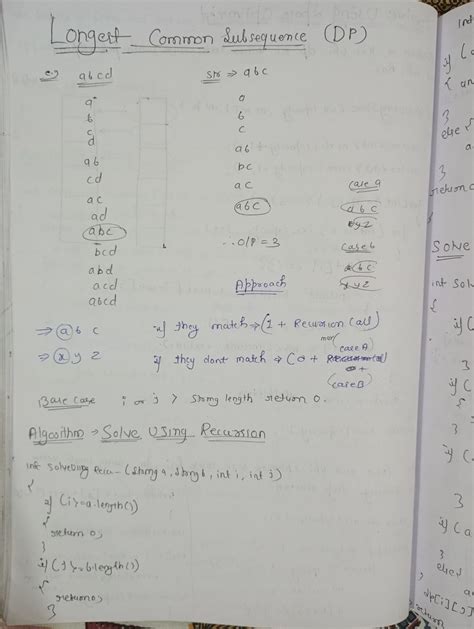 Longest Common Subsequence (DP)
abcd
str ⇒ abc
a
b
c
d
ab
cd
ac
ad
abc
bcd
abd
acd
abcd
a
b
c
ab
bc
ac
abc
∴ O/P = 3
case a
abc
xyz
case b
abc
xyz
Approach
⇒ a b c if they match ⇒ (1 + Recursion Call)
⇒ x y z if they dont match ⇒ (0 +
max(case A)
(case B)
Base case i or j > string length return 0.
Algorithm ⇒ Solve Using Recursion
(string a, string b, int i, int j)
{
if (i >= a.length())
{
return 0;
}
if (j >= b.length())
{
return 0;
}
if (
{
}
else {
}
return
SOLVE
int sol
{
if (
}
if (
{
}
if (a
}
else {
dp[i][j]
}
return